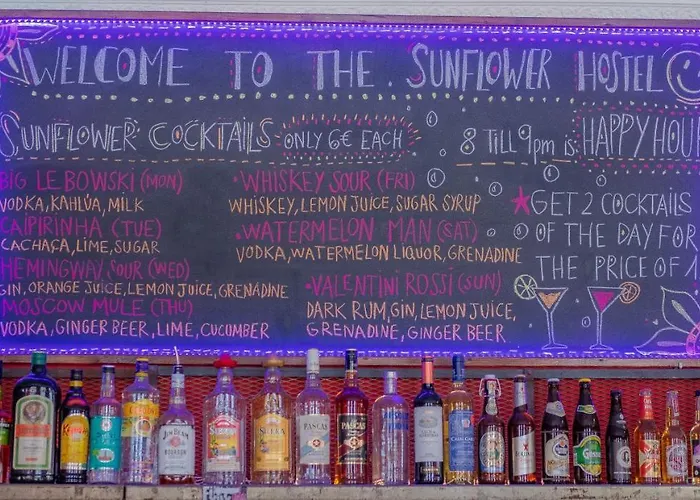 WELCOME TO THE SUNFLOWER HOSTEL
SUNFLOWER COCKTAILS - ONLY 6€ EACH
8 TILL 9pm is HAPPY HOU
BIG LEBOWSKI (MON)
VODKA, KAHLÚA, MILK
CAIPIRINHA (TUE)
CACHAÇA, LIME, SUGAR
HEMINGWAY SOUR (WED)
GIN, ORANGE JUICE, LEMON JUICE, GRENADINE
MOSCOW MULE (THU)
VODKA, GINGER BEER, LIME, CUCUMBER
• WHISKEY SOUR (FRI)
WHISKEY, LEMON JUICE, SUGAR SYRUP
• WATERMELON MAN (SAT)
VODKA, WATERMELON LIQUOR, GRENADINE
• VALENTINI ROSSI (SUN)
DARK RUM, GIN, LEMON JUICE,
GRENADINE, GINGER BEER
★ GET 2 COCKTAILS
OF THE DAY FOR
THE PRICE OF 1
JIM BEAM
PASCAS
PASCAS